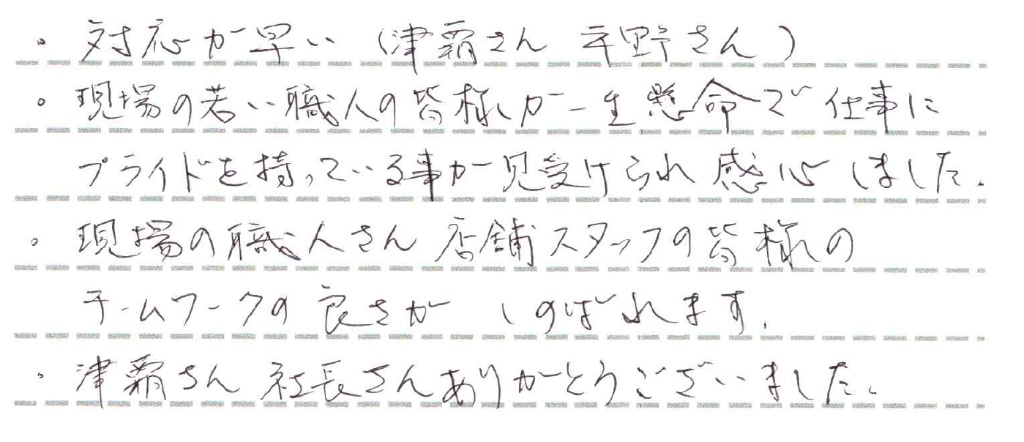 ・対応が早い（津覇さん 平野さん）
・現場の若い職人の皆様が一生懸命で仕事に
プライドを持っている事が見受けられ感心しました。
・現場の職人さん 店舗スタッフの皆様の
チームワークの良さが しのばれます。
・津覇さん 社長さんありがとうございました。